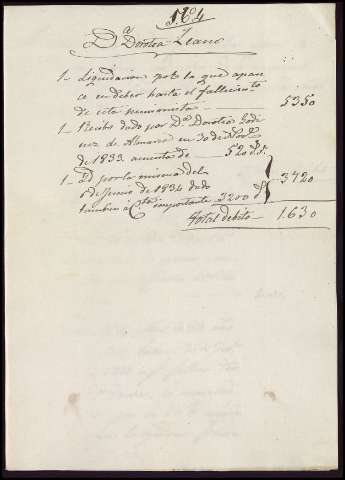 N.º 4
D.ª Dorotea Leano
1 - Liquidacion por la que apare
ce en deber hasta el fallecimto
de esta pensionista 5350
1 - Recibo dado por D.ª Dorotea Godi
nez de Almarra en 30 de Nov.e
de 1833 a cuenta de 520 p.s
1 - Id por la misma del
1º de Junio de 1834 dado 3720
tambien á Cta importante 3200 p.s
Total debito 1.630